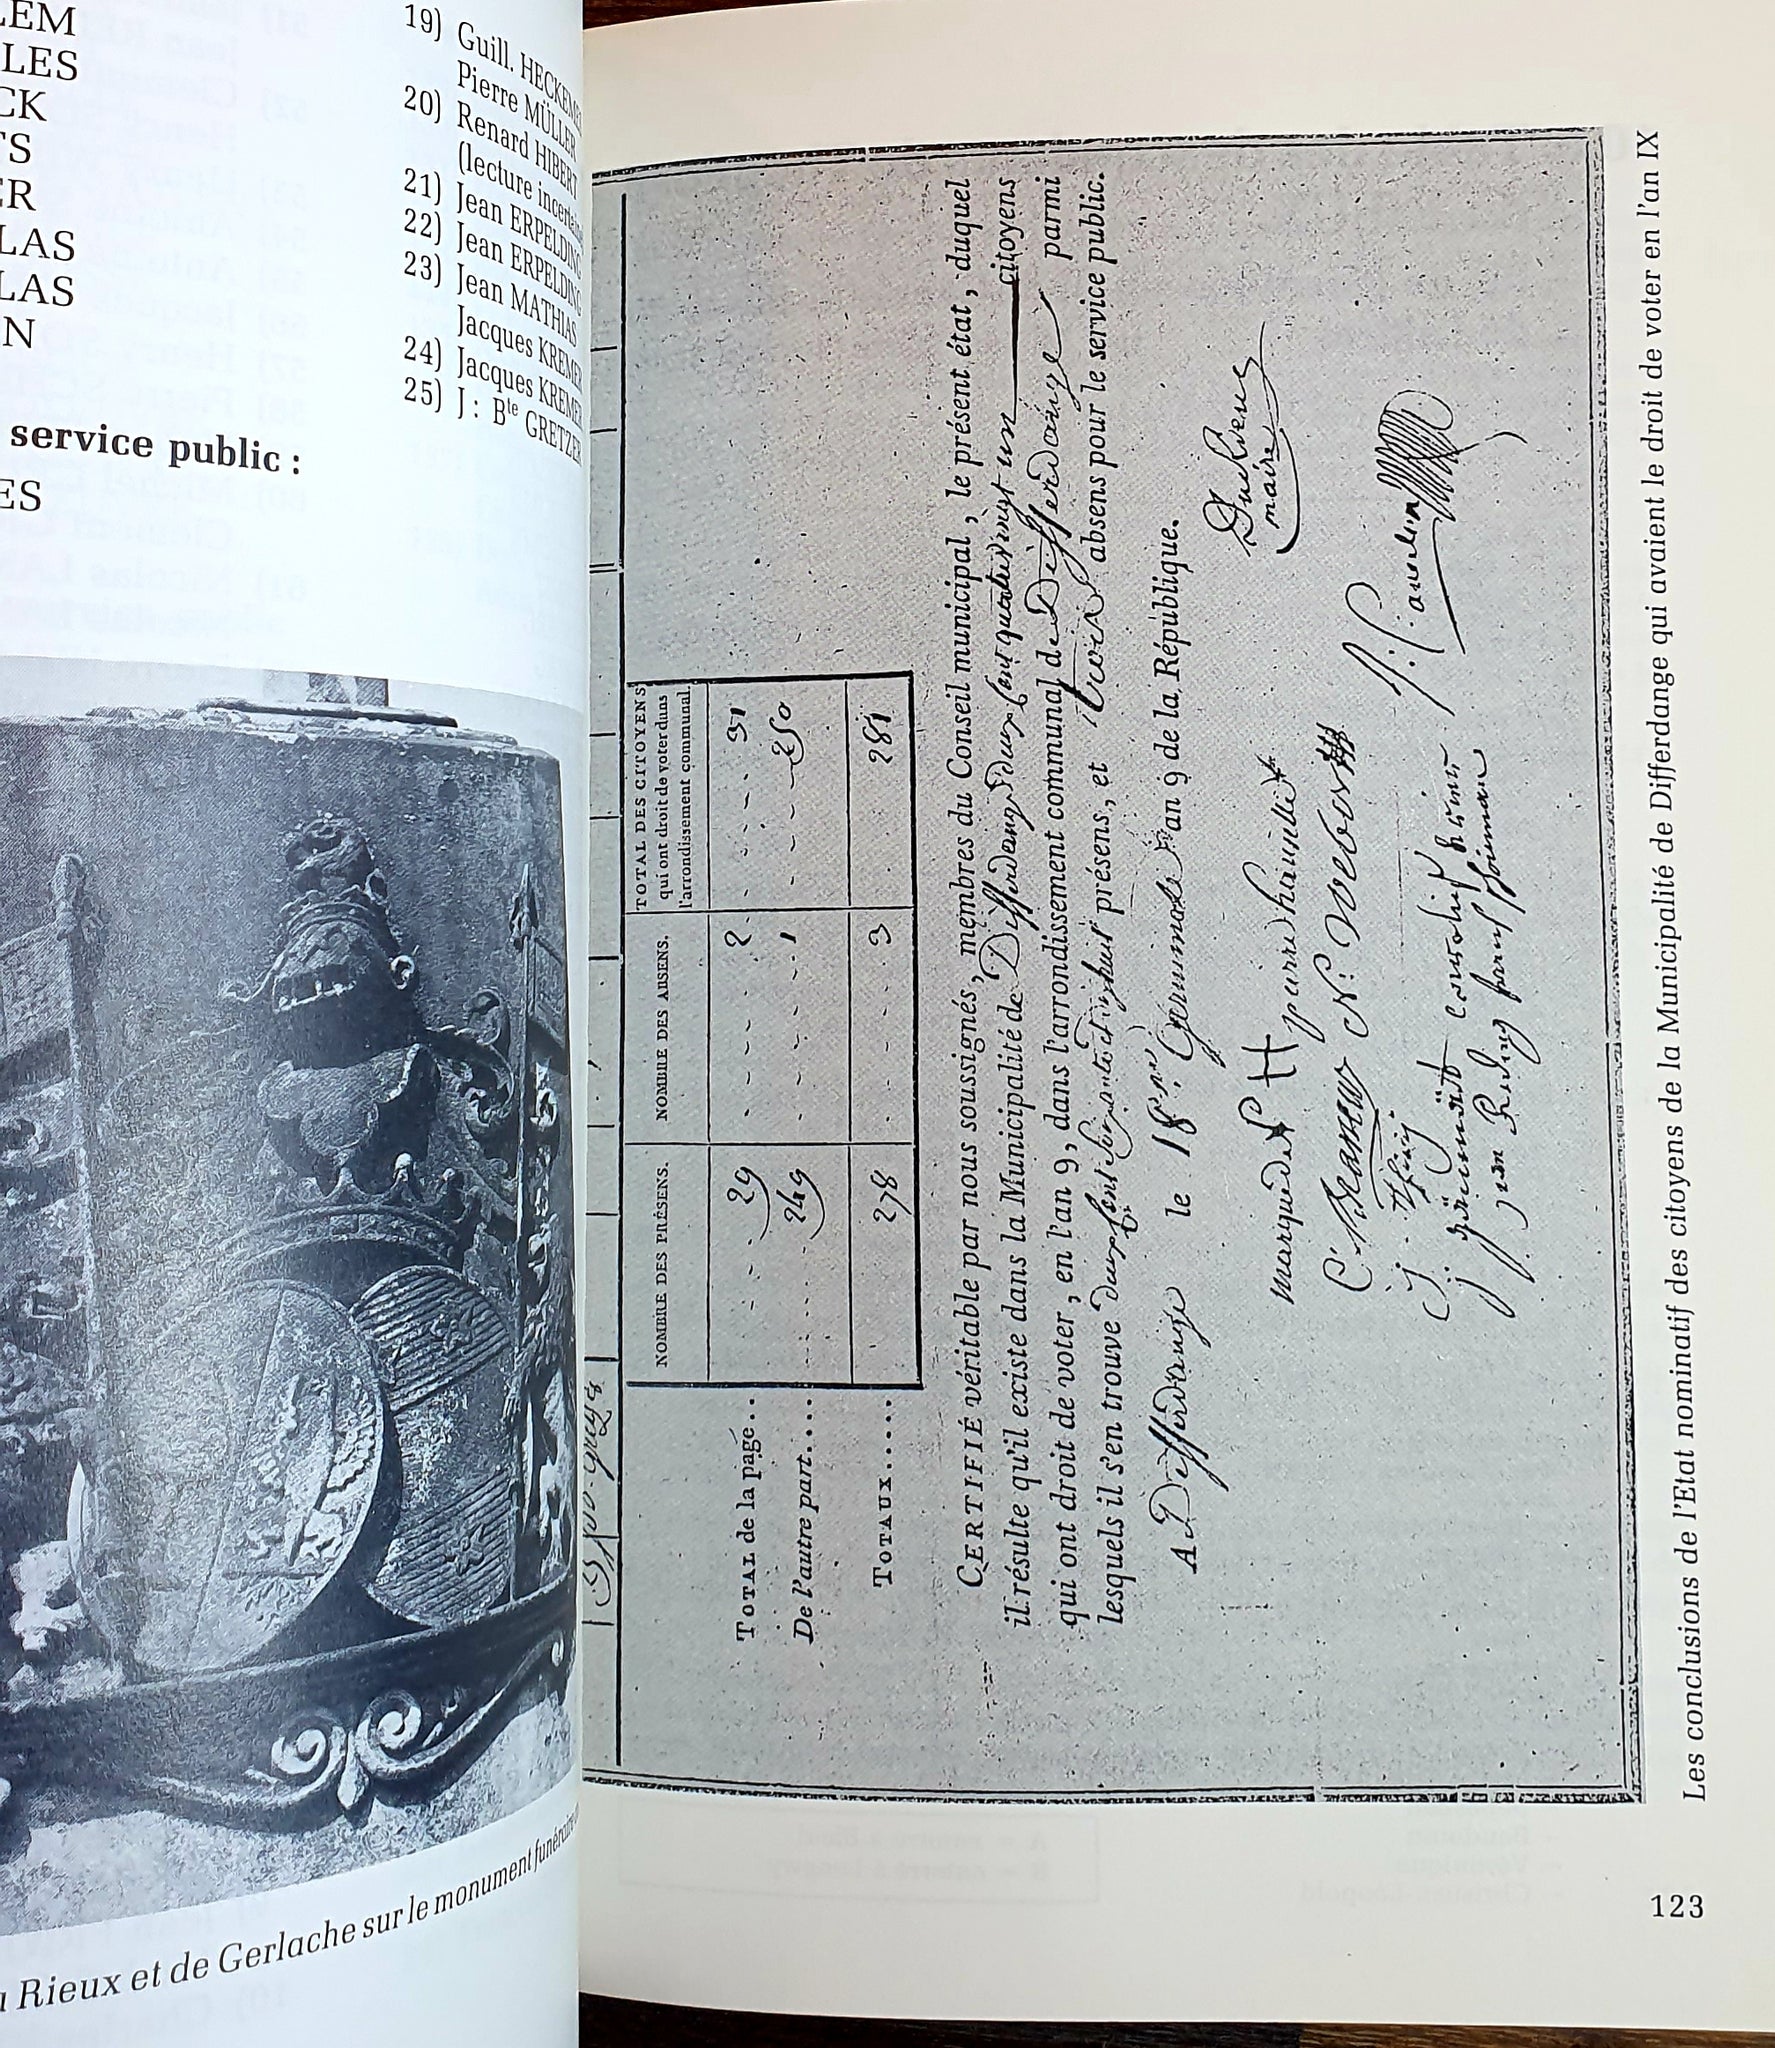 LEM
LES
CK
TS
ER
LAS
LAS
N
service public :
ES
19) Guill. HECKEME
Pierre MÜLLER
20) Renard HIBERT
(lecture incertaine
21) Jean ERPELDING
22) Jean ERPELDING
23) Jean MATHIAS
Jacques KREMER
24) Jacques KREMER
25) J : Bte GRETZER
Rieux et de Gerlache sur le monument funéraire
NOMBRE DES PRÉSENS.
NOMBRE DES ABSENS.
TOTAL DES CITOYENS
qui ont droit de voter dans
l'arrondissement communal.
TOTAL de la page... 29 2 31
De l'autre part..... 249 1 250
TOTAUX...... 278 3 281
CERTIFIÉ véritable par nous soussignés, membres du Conseil municipal, le présent état, duquel
il résulte qu'il existe dans la Municipalité de Differdange deux cent quatrevingt un citoyens
qui ont droit de voter, en l'an 9, dans l'arrondissement communal de Differdange parmi
lesquels il s'en trouve deux cent soixante et dixhuit présens, et trois absens pour le service public.
A Differdange le 18 Germinal an 9 de la République.
DuRieux
maire
marque de H pierre
N. Weber
Les conclusions de l'Etat nominatif des citoyens de la Municipalité de Differdange qui avaient le droit de voter en l'an IX
123